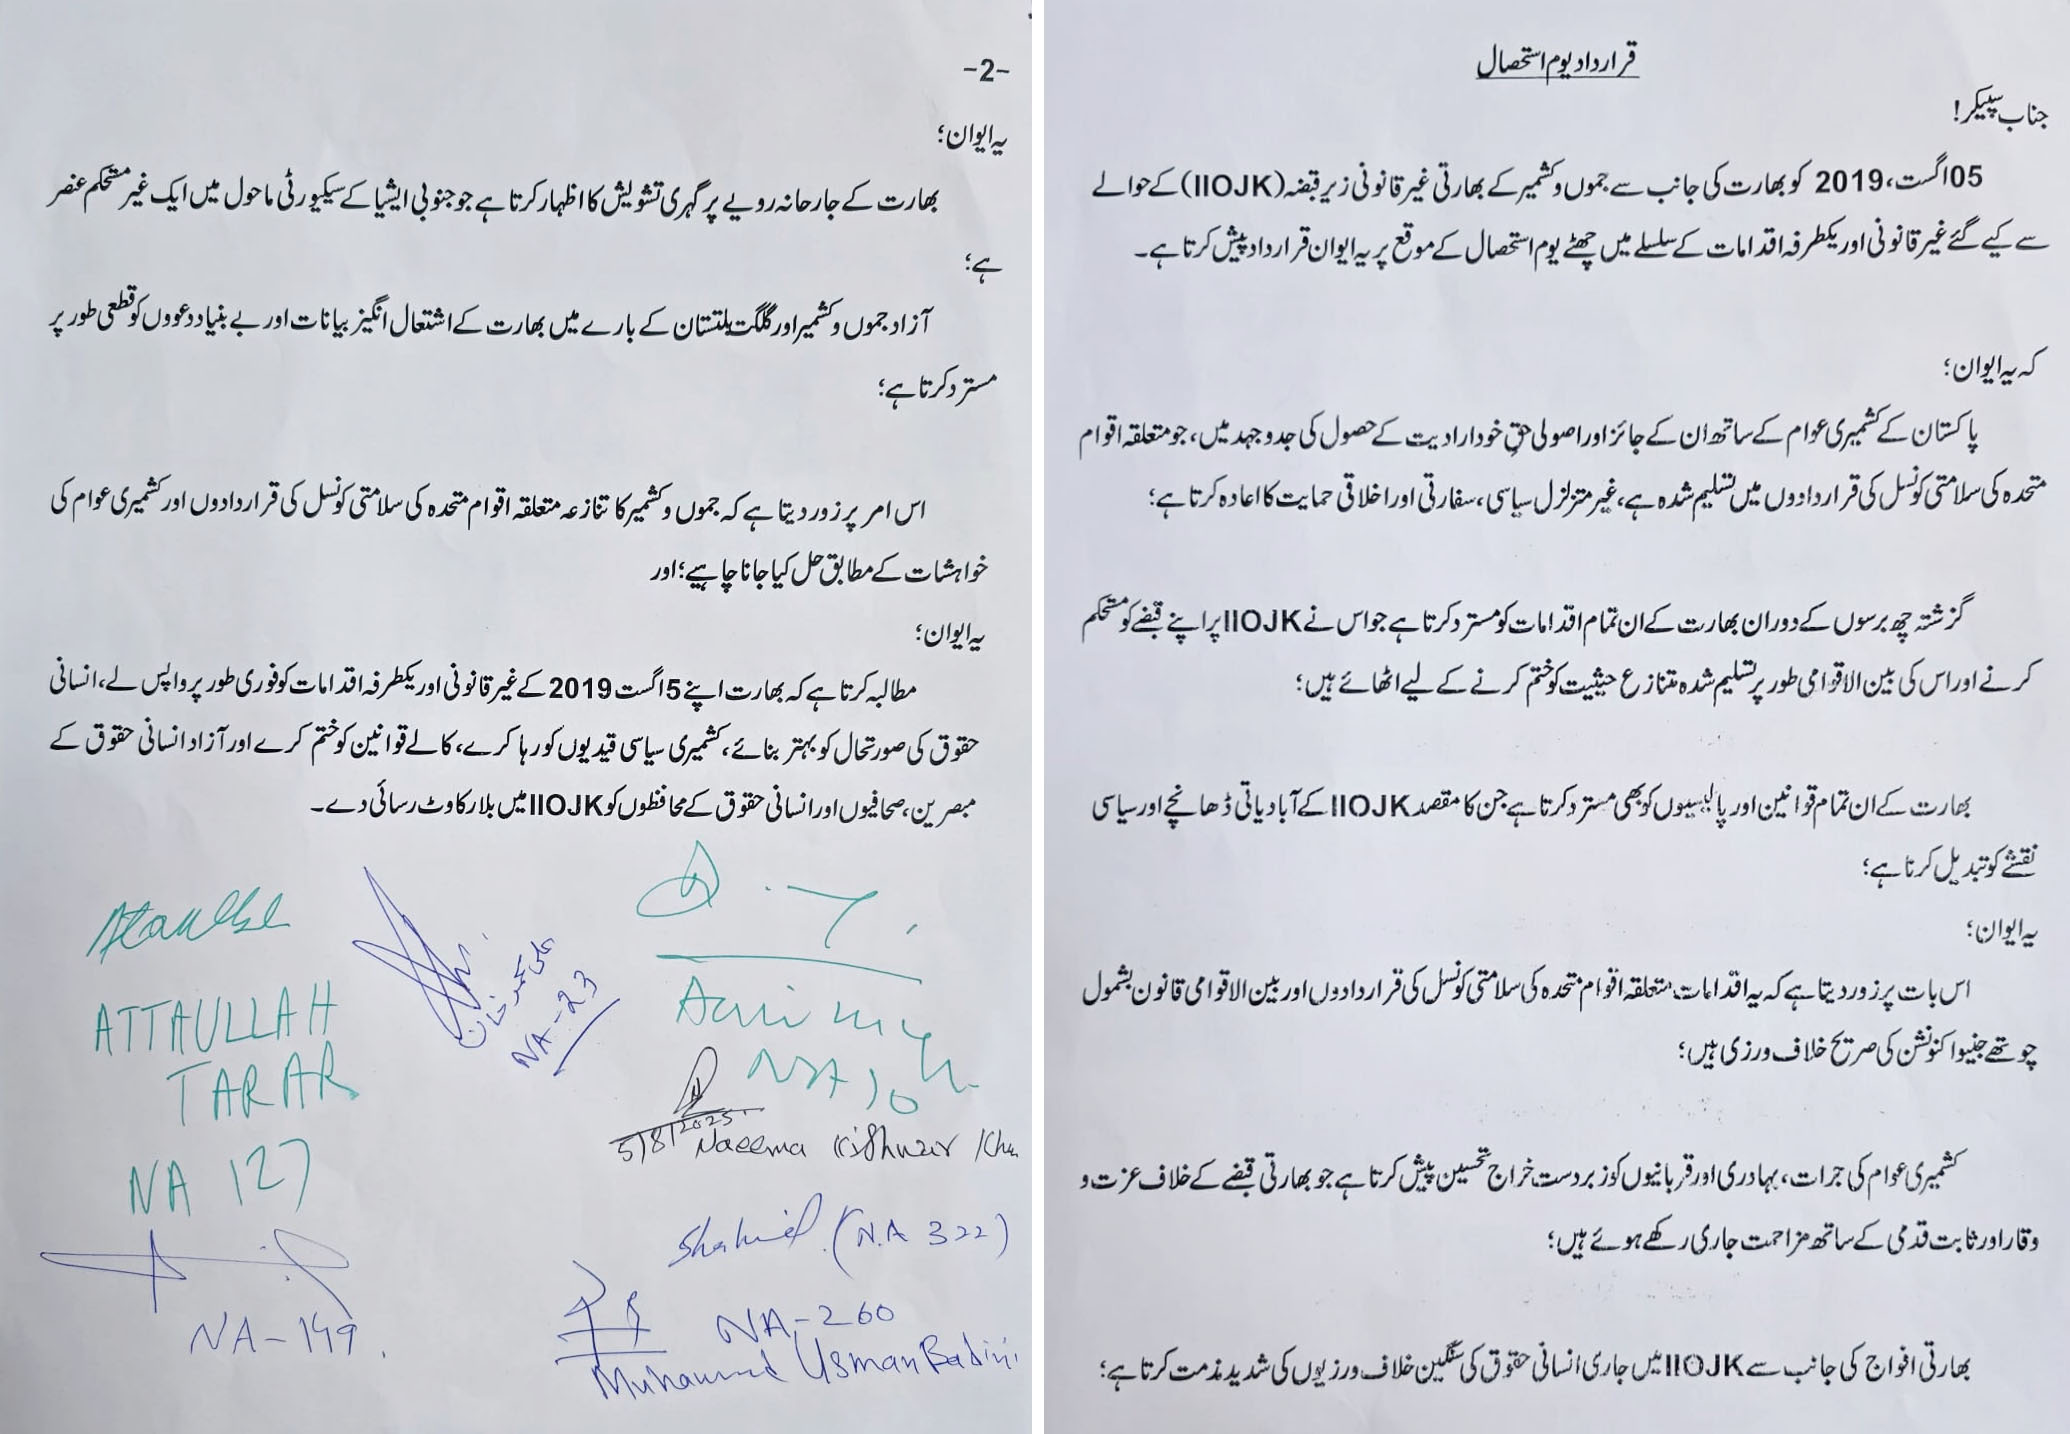 قرارداد یوم استحصال
جناب سپیکر!
05 اگست، 2019 کو بھارت کی جانب سے جموں و کشمیر کے بھارتی غیر قانونی زیر قبضہ (IIOJK) کے حوالے
سے کیے گئے غیر قانونی اور یکطرفہ اقدامات کے سلسلے میں چھٹے یوم استحصال کے موقع پر یہ ایوان قرارداد پیش کرتا ہے۔
کہ یہ ایوان؛
پاکستان کے کشمیری عوام کے ساتھ ان کے جائز اور اصولی حقِ خودارادیت کے حصول کی جدوجہد میں، جو متعلقہ اقوام
متحدہ کی سلامتی کونسل کی قراردادوں میں تسلیم شدہ ہے، غیر متزلزل سیاسی، سفارتی اور اخلاقی حمایت کا اعادہ کرتا ہے؛
گزشتہ چھ برسوں کے دوران بھارت کے ان تمام اقدامات کو مسترد کرتا ہے جو اس نے IIOJK پر اپنے قبضے کو مستحکم
کرنے اور اس کی بین الاقوامی طور پر تسلیم شدہ متنازع حیثیت کو ختم کرنے کے لیے اٹھائے ہیں؛
بھارت کے ان تمام قوانین اور پالیسیوں کو بھی مسترد کرتا ہے جن کا مقصد IIOJK کے آبادیاتی ڈھانچے اور سیاسی
نقشے کو تبدیل کرنا ہے؛
یہ ایوان؛
اس بات پر زور دیتا ہے کہ یہ اقدامات متعلقہ اقوام متحدہ کی سلامتی کونسل کی قراردادوں اور بین الاقوامی قانون بشمول
چوتھے جنیوا کنونشن کی صریح خلاف ورزی ہیں؛
کشمیری عوام کی جرات، بہادری اور قربانیوں کو زبردست خراج تحسین پیش کرتا ہے جو بھارتی قبضے کے خلاف عزت و
وقار اور ثابت قدمی کے ساتھ مزاحمت جاری رکھے ہوئے ہیں؛
بھارتی افواج کی جانب سے IIOJK میں جاری انسانی حقوق کی سنگین خلاف ورزیوں کی شدید مذمت کرتا ہے؛
-2-
یہ ایوان؛
بھارت کے جارحانہ رویے پر گہری تشویش کا اظہار کرتا ہے جو جنوبی ایشیا کے سیکیورٹی ماحول میں ایک غیر مستحکم عنصر
ہے؛
آزاد جموں و کشمیر اور گلگت بلتستان کے بارے میں بھارت کے اشتعال انگیز بیانات اور بے بنیاد دعووں کو قطعی طور پر
مسترد کرتا ہے؛
اس امر پر زور دیتا ہے کہ جموں و کشمیر کا تنازعہ متعلقہ اقوام متحدہ کی سلامتی کونسل کی قراردادوں اور کشمیری عوام کی
خواہشات کے مطابق حل کیا جانا چاہیے؛ اور
یہ ایوان؛
مطالبہ کرتا ہے کہ بھارت اپنے 5 اگست 2019 کے غیر قانونی اور یکطرفہ اقدامات کو فوری طور پر واپس لے، انسانی
حقوق کی صورتحال کو بہتر بنائے، کشمیری سیاسی قیدیوں کو رہا کرے، کالے قوانین کو ختم کرے اور آزاد انسانی حقوق کے
مبصرین، صحافیوں اور انسانی حقوق کے محافظوں کو IIOJK میں بلا رکاوٹ رسائی دے۔
ATTAULLAH
TARAR
NA 127
علی محمد خان
NA-23
5/8/2025
Naeema Kishwar Khan
Shahid (N.A 322)
NA-149
NA-260
Muhammad Usman Badini